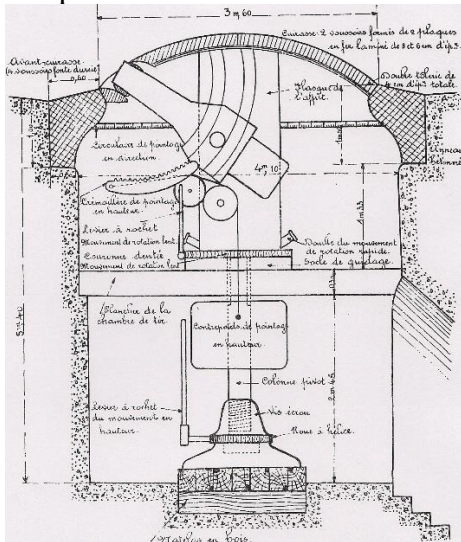 3m,60
Cuirasse: 2 voussoirs formés de 2 plaques
en fer laminé de 8 et 6 cm d'ép.r
Avant-cuirasse
(4 voussoirs fonte durcie)
Double tôlerie de
4 cm d'ép.r totale.
Flasque de
l'affût.
Circulaire de pointage
en direction
Crémaillère de pointage
en hauteur
Levier à rochet
Mouvement de rotation lent.
Couronne dentée
Mouvement de rotation lent
1m33
Douille du mouvement
de rotation rapide.
Socle de guidage.
Plancher de la
chambre de tir
5m40
Contrepoids de pointage
en hauteur
2m45
Colonne pivot
Levier à rochet
du mouvement en
hauteur
Vis écrou
Roue à hélice.
Matelas en bois.